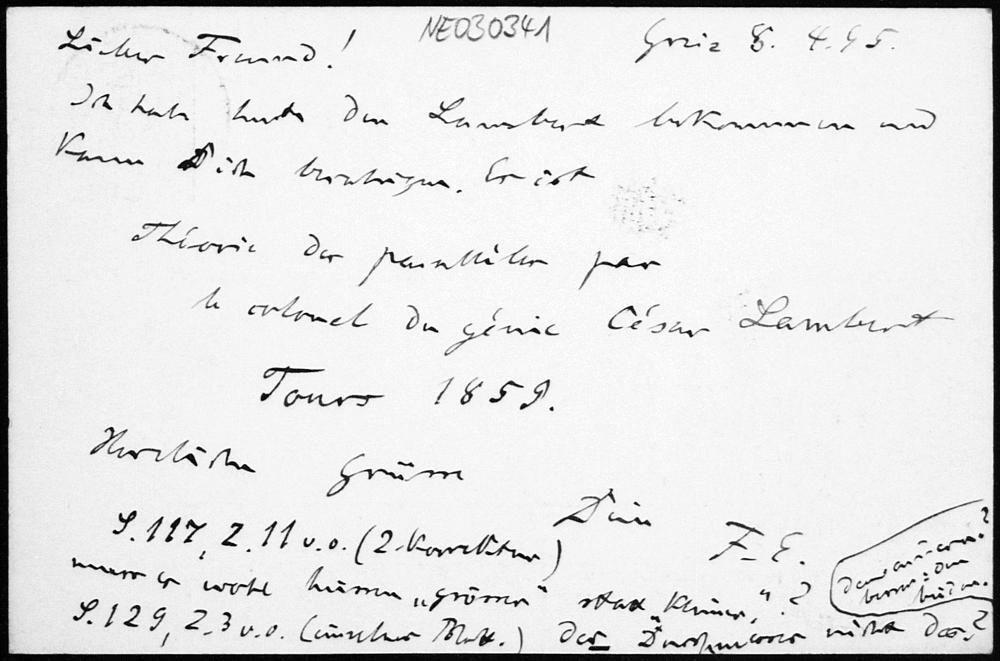 NE030341
Greiz 8. 4. 95.
Lieber Freund!
Ich habe heute den Lambert bekommen und
kann Dich beruhigen. Es ist
Théorie des parallèles par
le colonel du génie César Lambert
Tours 1859.
Herzliche Grüsse
Dein
F. E.
S. 117, Z. 11 v. o. (2. Korrektur)
muss es wohl heissen „grösser“ statt „kleiner“?
S. 129, Z. 3 v. o. (einzelnes Blatt.) der Durchmesser nicht das?